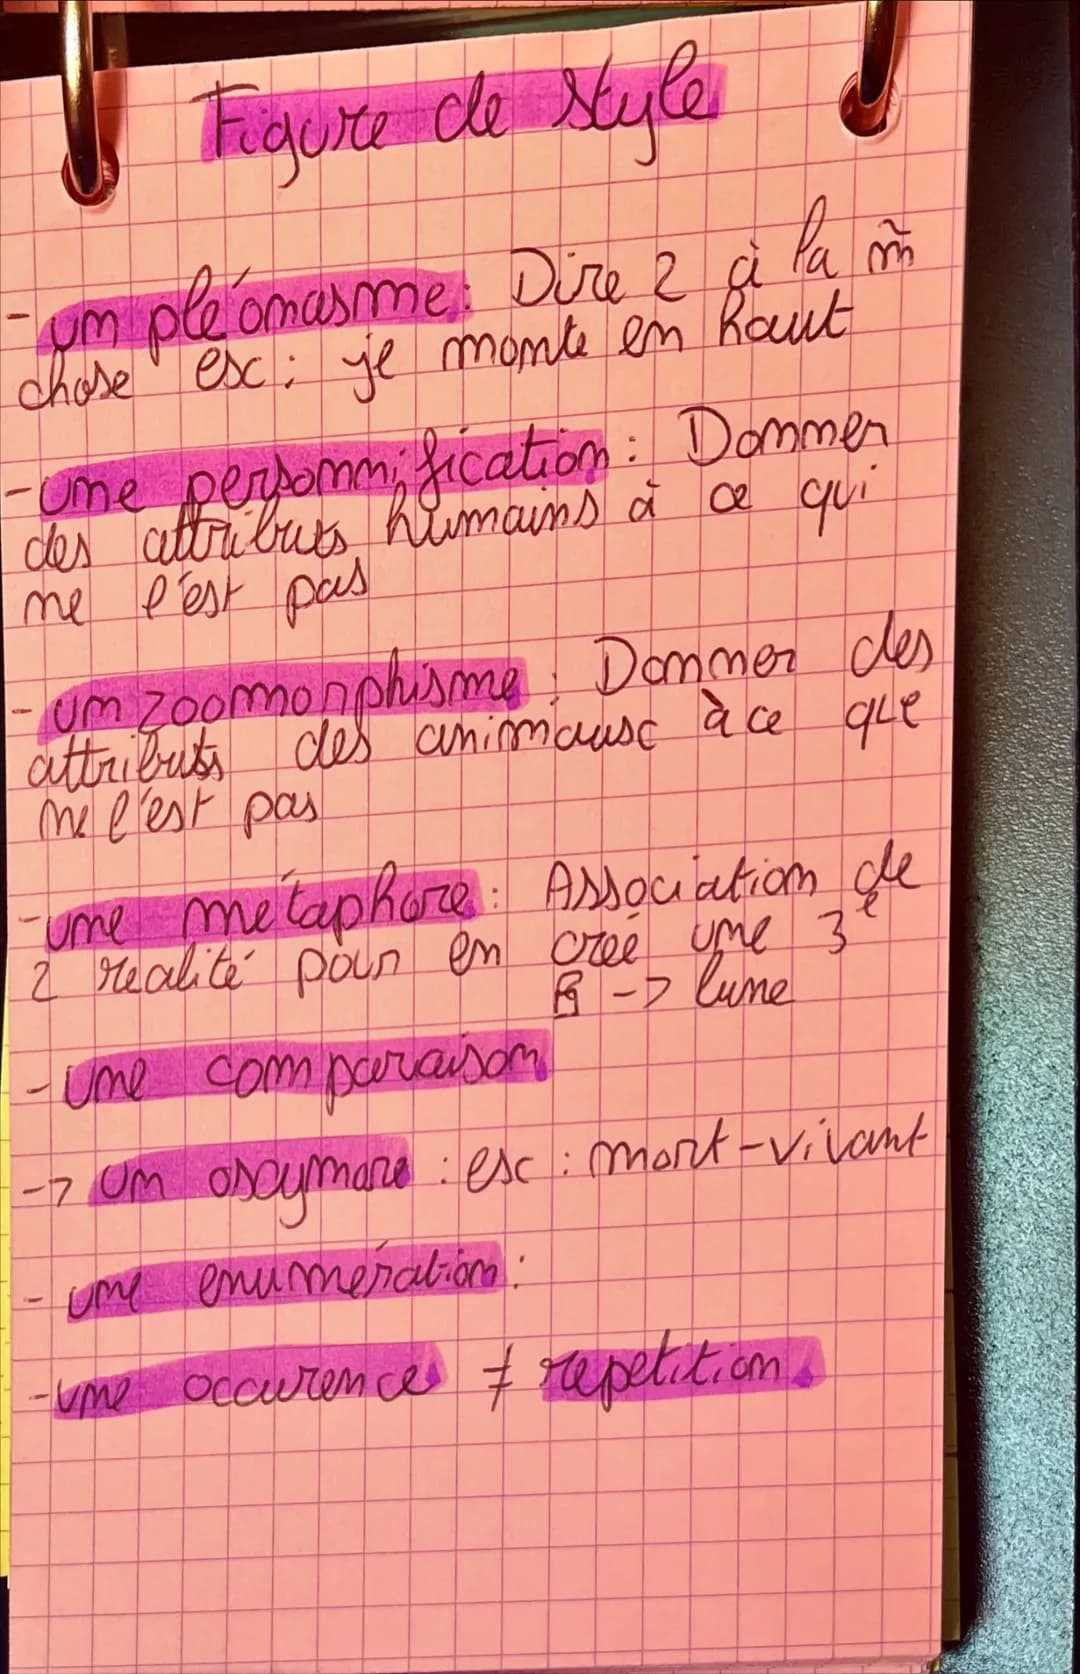 Figure de style
- un pléonasme : Dire 2 à la m̃
chose ex : je monte en haut
- une personnification : Donner
des attributs humains à ce qui
ne l'est pas
- un zoomorphisme : Donner des
attributs des animaux à ce que
ne l'est pas
- une métaphore : Association de
2 realité pour en créé une 3e
-> lune
- une comparaison
-> un oxymore : ex : mort-vivant
- une enumération :
- une occurence ≠ repetition